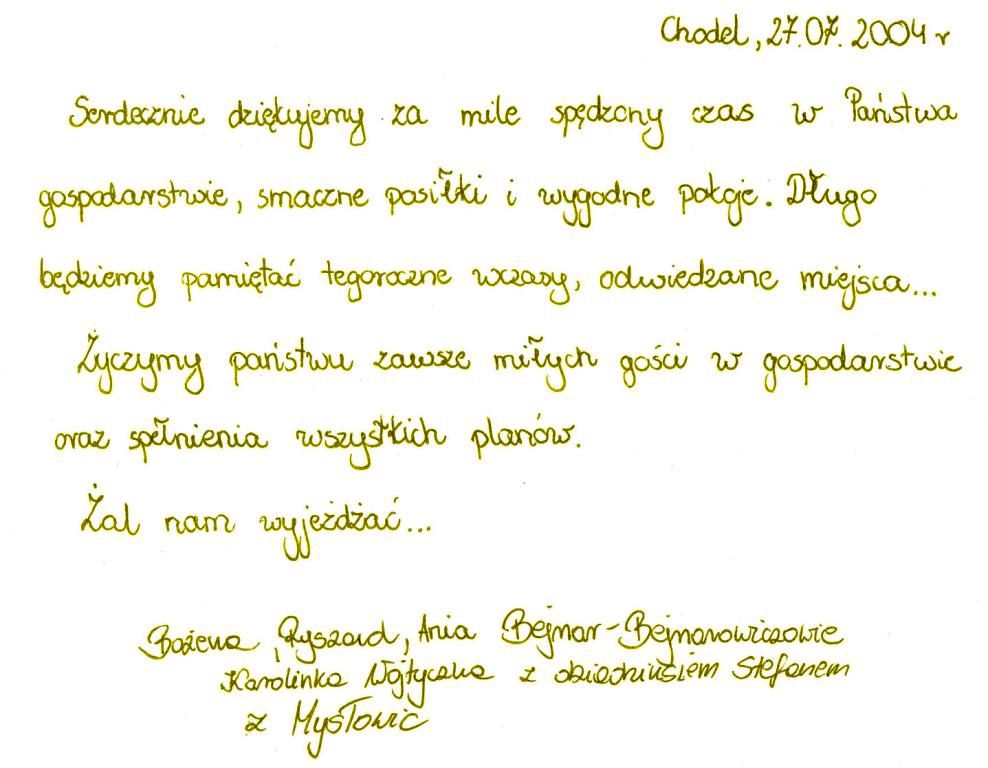 Chodel, 27.07.2004 r
Serdecznie dziękujemy za mile spędzony czas w Państwa
gospodarstwie, smaczne posiłki i wygodne pokoje. Długo
będziemy pamiętać tegoroczne wczasy, odwiedzane miejsca...
Życzymy państwu zawsze miłych gości w gospodarstwie
oraz spełnienia wszystkich planów.
Żal nam wyjeżdżać...
Bożena, Ryszard, Ania Bejnar-Bejnarowiczowie
Karolinka Wojtyczka z dziadziusiem Stefanem
z Mysłowic